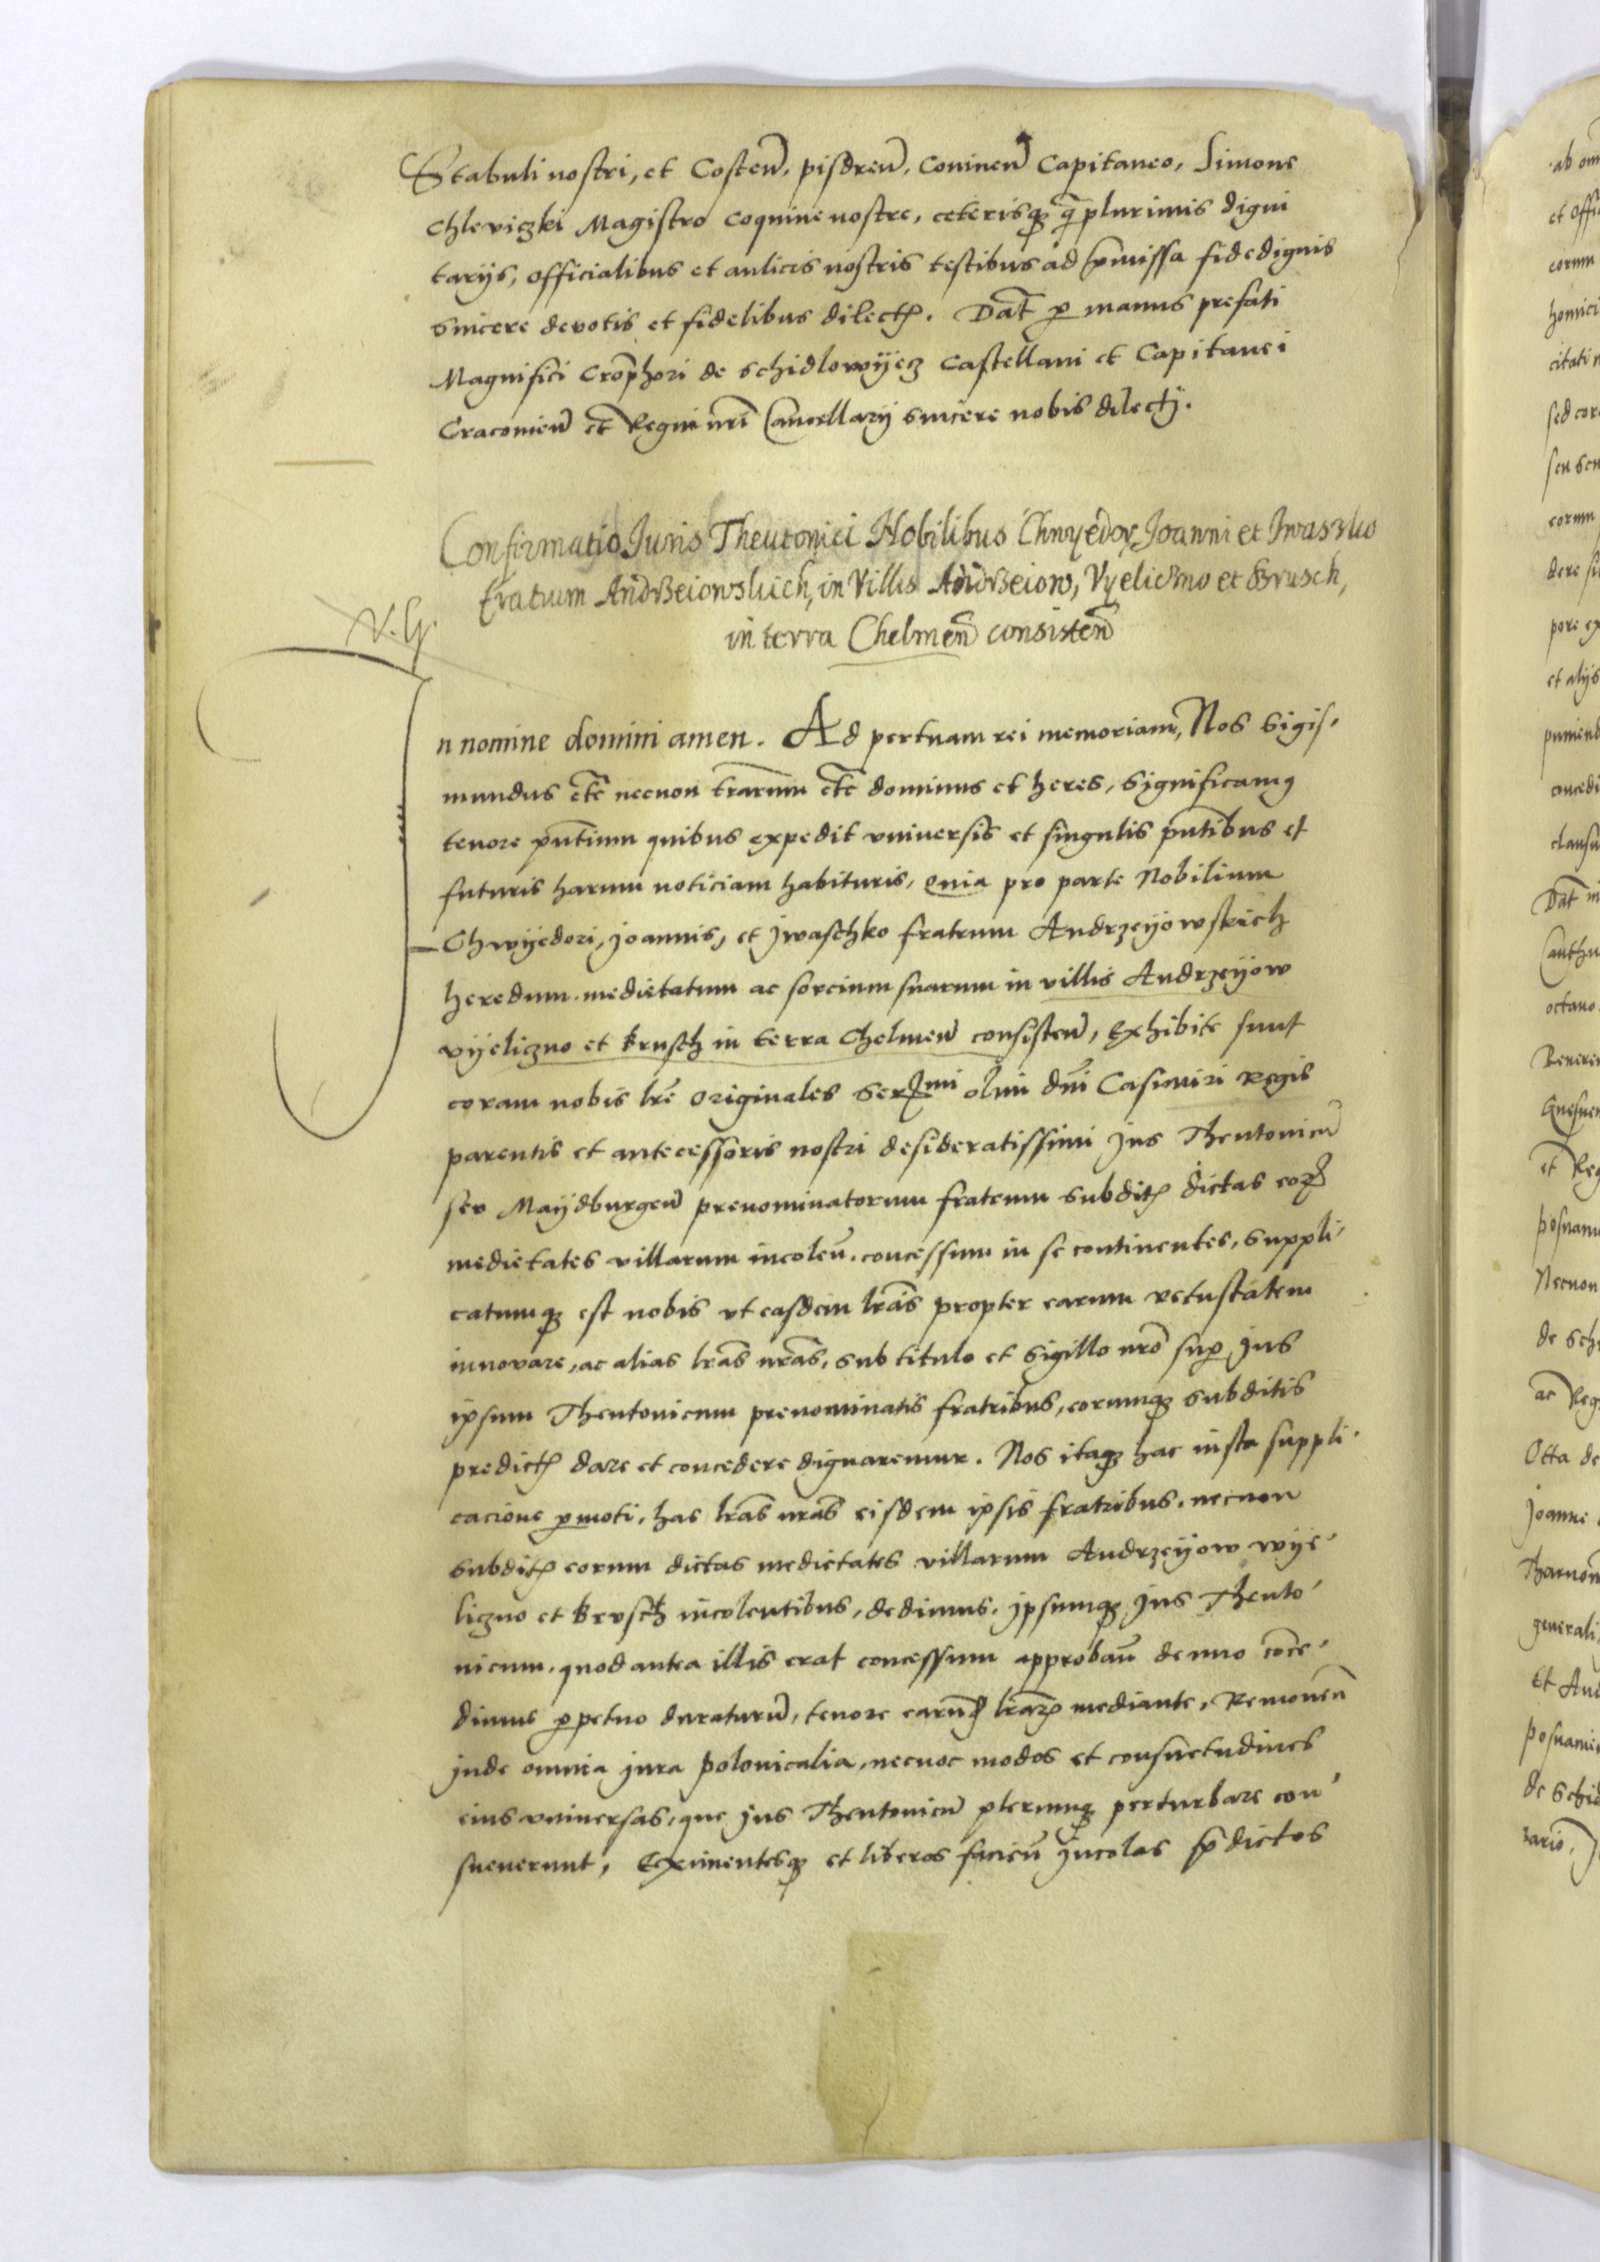 Stabuli nostri, et Costeñ, pisdreñ, Conineñ Capitaneo, Simone
Chleviczki Magistro Coquine nostre, ceterisqꝫ q̃ plurimis digni
tarijs, officialibus et aulicis nostris testibus ad p̃missa fidedignis
Sincere devotis et fidelibus dilectꝭ. Dat̃ ꝑ manus prefati
Magnifici Cr̃ophori de Schidlowyecz Castellani et Capitanei
Cracovieñ et Regni nr̃i Cancellarij sincere nobis dilecti.
Confirmatio Iuris Theutonici Nobilibus Chwyedor, Joanni et Jwasʒko
fratrum Andrʒeiowskich, in Villis Andrʒeiow, Vyeliczno et Krusch,
in terra Chelmeñ consisteñ
V. G.
In nomine domini amen. Ad pertuam rei memoriam, Nos Sigis,
mundus etc̃ necnon tr̃arum etc̃ dominus et heres, significamꝰ
tenore pñtium quibus expedit vniversis et singulis pñtibus et
futuris harum noticiam habituris, quia pro parte Nobilium
Chwyedori, Joannis, et Jwaschko fratrum Andrzeyowskich
heredum medietatum ac sorcium suarum in villis Andrzeyow
vyeliczno et krusch in terra Chelmeñ consisteñ, Exhibite sunt
coram nobis lr̃e originales Serꝫmi olim dñi Casimiri Regis
parentis et antecessoris nostri desideratissimi Jus Theutonicũ
seu Maydburgeñ prenominatorum fratrum subditꝭ dictas eoꝝ
medietates villarum incoleñ. concessum in se continentes, suppli,
catumqꝫ est nobis vt easdem lr̃as propter earum vetustatem
innovare, ac alias lr̃as nr̃as, sub titulo et sigillo nr̃o suꝑ Jus
ipsum Theutonicum prenominatis fratribus, eorumqꝫ subditis
predictꝭ dare et concedere dignaremur. Nos itaqꝫ hac iusta suppli,
cacione ꝑmoti, has lr̃as nr̃as eisdem ipsis fratribus, necnon
subditꝭ eorum dictas medietates villarum Andrzeyow wye,
liczno et krusch incolentibus, dedimus, ipsumqꝫ Jus Theuto,
nicum, quod antea illis erat concessum approbañ denuo conce,
dimus ꝑpetuo duraturũ, tenore earundꝫ lr̃aꝝ mediante, Removeñ
inde omnia jura polonicalia, necnoc modos et consuetudines
eius vniversas, que Jus Theutonicũ plerumqꝫ perturbare con,
sueverunt, Eximentesqꝫ et liberos facieñ Jncolas p̃dictos